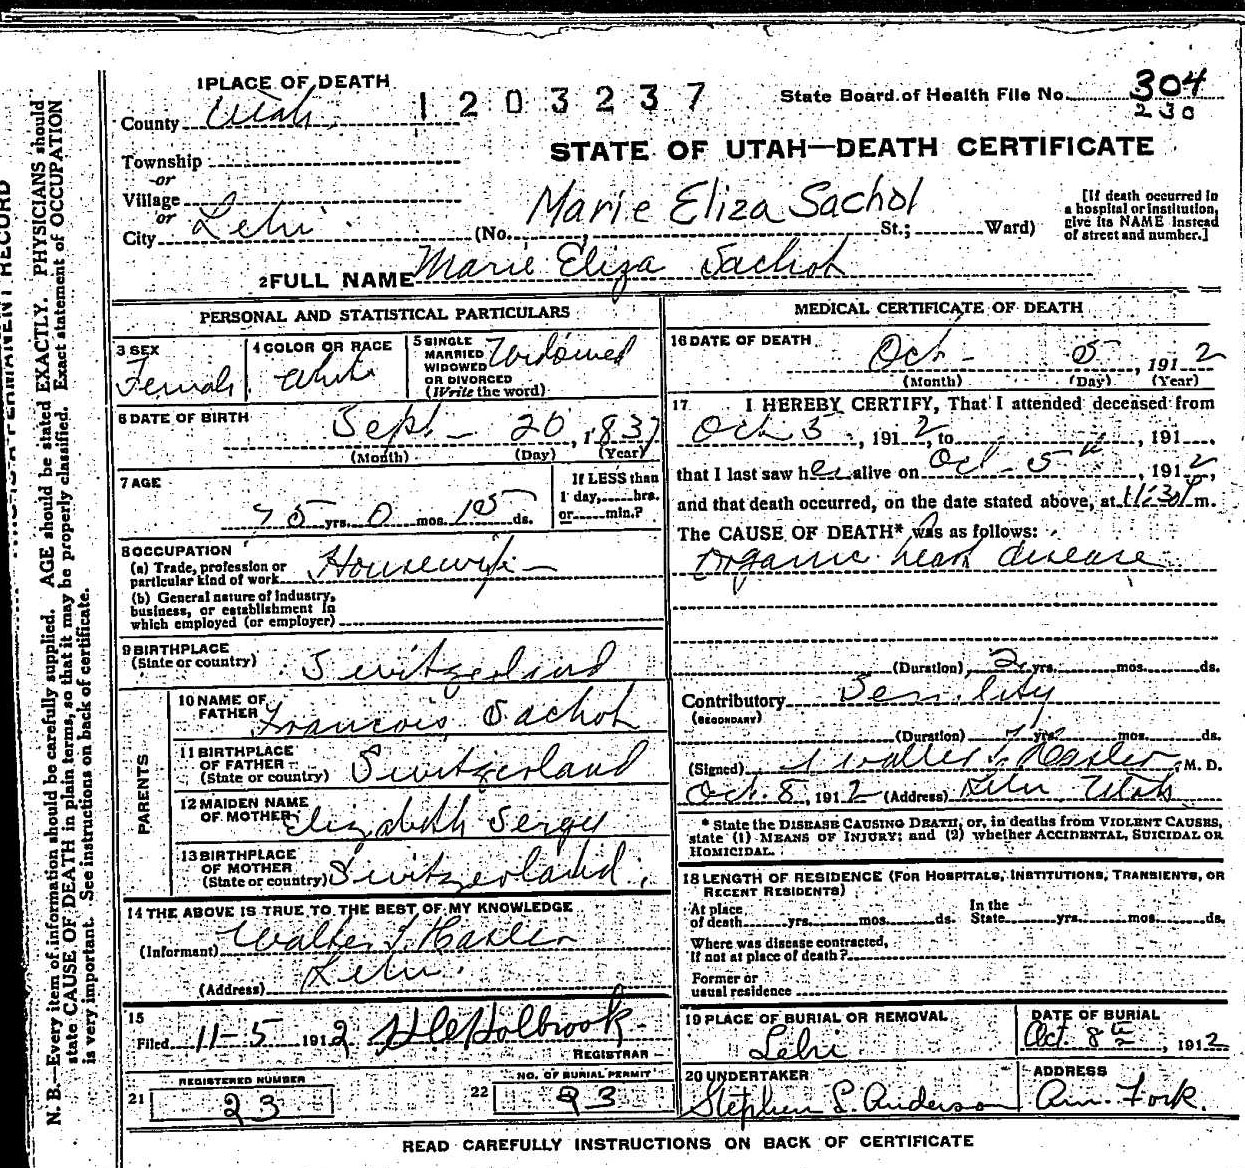 1 PLACE OF DEATH
County Utah 1203237 State Board of Health File No. 304
230
Township
STATE OF UTAH—DEATH CERTIFICATE
-or
Village
or
City Lehi (No. Marie Eliza Sachot St.; Ward)
[If death occurred in a hospital or institution, give its NAME instead of street and number.]
2 FULL NAME Marie Eliza Sachot
PERSONAL AND STATISTICAL PARTICULARS
3 SEX Female
4 COLOR OR RACE White
5 SINGLE MARRIED WIDOWED OR DIVORCED (Write the word) Widowed
6 DATE OF BIRTH Sept. 20, 1837
(Month) (Day) (Year)
7 AGE 75 yrs. 0 mos. 15 ds.
If LESS than 1 day, hrs. or min.?
8 OCCUPATION
(a) Trade, profession or particular kind of work Housewife
(b) General nature of industry, business, or establishment in which employed (or employer)
9 BIRTHPLACE (State or country) Switzerland
PARENTS
10 NAME OF FATHER Francois Sachot
11 BIRTHPLACE OF FATHER (State or country) Switzerland
12 MAIDEN NAME OF MOTHER Elizabeth Sergy
13 BIRTHPLACE OF MOTHER (State or country) Switzerland
14 THE ABOVE IS TRUE TO THE BEST OF MY KNOWLEDGE
(Informant) Walter T. Hasler
(Address) Lehi
15
Filed 11-5 1912 Holbrook
REGISTRAR
REGISTERED NUMBER
21 23
NO. OF BURIAL PERMIT
22 23
MEDICAL CERTIFICATE OF DEATH
16 DATE OF DEATH Oct. 5, 1912
(Month) (Day) (Year)
17 I HEREBY CERTIFY, That I attended deceased from
Oct 3, 1912, to , 191
that I last saw her alive on Oct - 5th, 1912,
and that death occurred, on the date stated above, at 11:30 P m.
The CAUSE OF DEATH* was as follows:
Organic heart disease
(Duration) 2 yrs. mos. ds.
Contributory Senility
(SECONDARY)
(Duration) yrs. mos. ds.
(Signed) Walter T. Hasler M. D.
Oct. 8, 1912 (Address) Lehi Utah
* State the DISEASE CAUSING DEATH, or, in deaths from VIOLENT CAUSES, state (1) MEANS OF INJURY; and (2) whether ACCIDENTAL, SUICIDAL OR HOMICIDAL.
18 LENGTH OF RESIDENCE (FOR HOSPITALS, INSTITUTIONS, TRANSIENTS, OR RECENT RESIDENTS)
At place of death yrs. mos. ds. In the State yrs. mos. ds.
Where was disease contracted, If not at place of death?
Former or usual residence
19 PLACE OF BURIAL OR REMOVAL Lehi
DATE OF BURIAL Oct. 8th, 1912
20 UNDERTAKER Stephen L. Anderson
ADDRESS Am. Fork.
READ CAREFULLY INSTRUCTIONS ON BACK OF CERTIFICATE
PERMANENT RECORD
N. B.—Every item of information should be carefully supplied. AGE should be stated EXACTLY. PHYSICIANS should
state CAUSE OF DEATH in plain terms, so that it may be properly classified. Exact statement of OCCUPATION
is very important. See instructions on back of certificate.